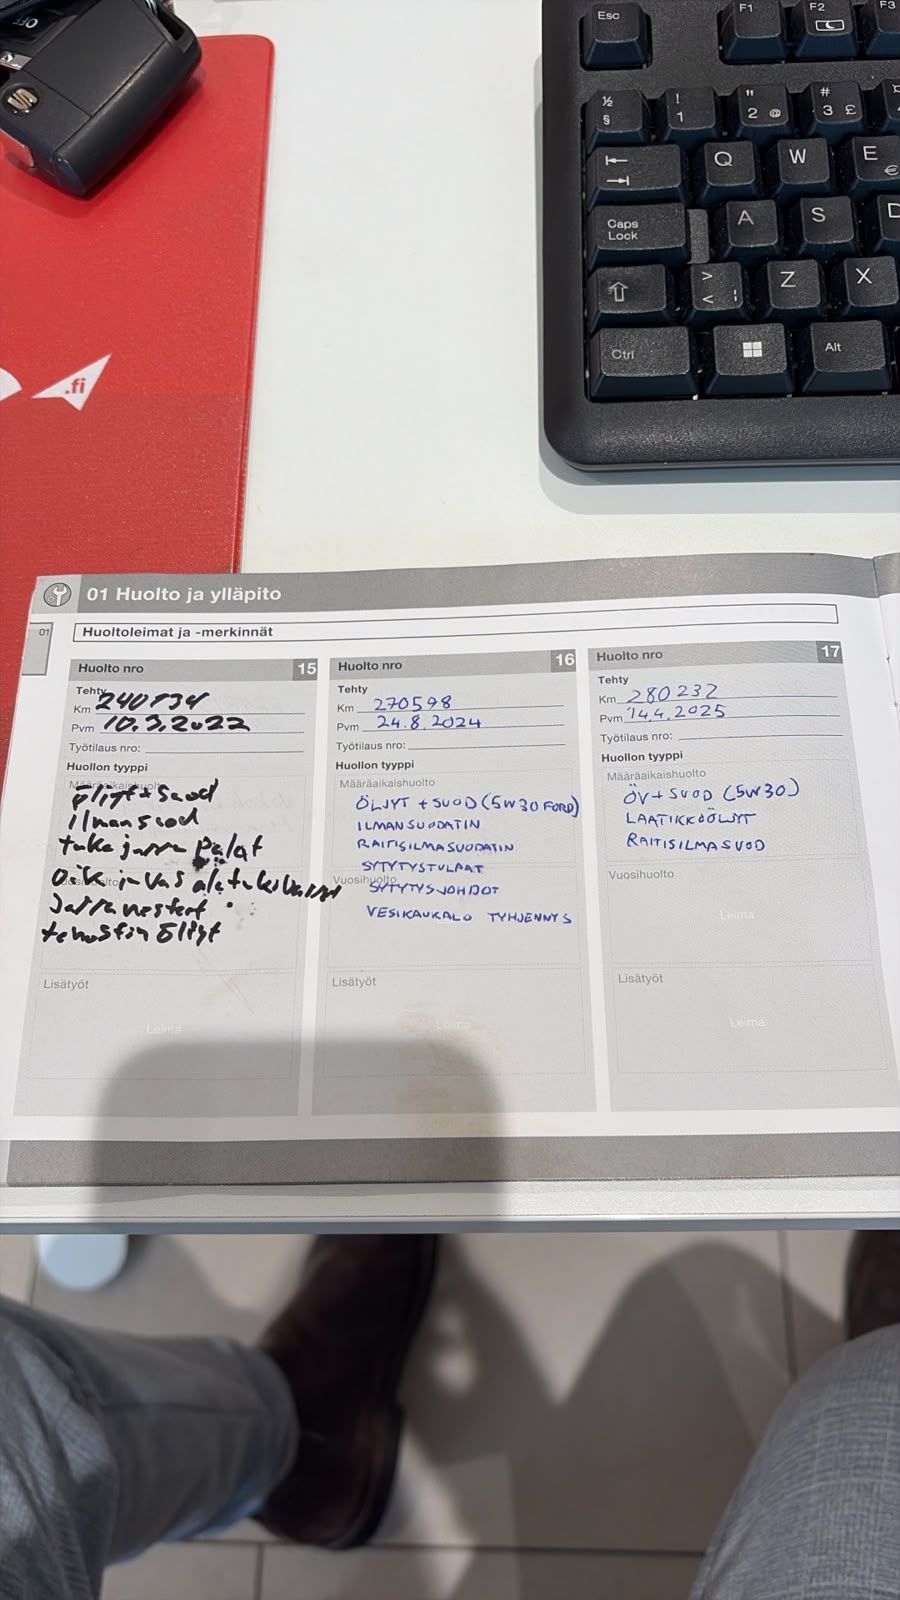 OFF
.fi
Esc
F1
F2
F3
½
§
!
1
"
2 @
#
3 £
Q
W
E
€
Caps
Lock
A
S
D
>
<
¦
Z
X
Ctrl
Alt
01 Huolto ja ylläpito
01
Huoltoleimat ja -merkinnät
Huolto nro 15
Tehty
Km 240734
Pvm 10.3.2022
Työtilaus nro:
Huollon tyyppi
Määräaikaishuolto
Öljyt + suod
ilmansuod
taka jarru palat
oik ja vas
Vuosihuolto
Jarrunesteet
tehostin öljyt
Lisätyöt
Leima
Huolto nro 16
Tehty
Km 270598
Pvm 24.8.2024
Työtilaus nro:
Huollon tyyppi
Määräaikaishuolto
ÖLJYT + SUOD (5W30 FORD)
ILMANSUODATIN
RAITISILMASUODATIN
SYTYTYSTULPAT
Vuosihuolto
SYTYTYSJOHDOT
VESIKAUKALO TYHJENNYS
Lisätyöt
Leima
Huolto nro 17
Tehty
Km 280232
Pvm 14.4.2025
Työtilaus nro:
Huollon tyyppi
Määräaikaishuolto
ÖV + SUOD (5W30)
LAATIKKOÖLJYT
RAITISILMASUOD
Vuosihuolto
Leima
Lisätyöt
Leima